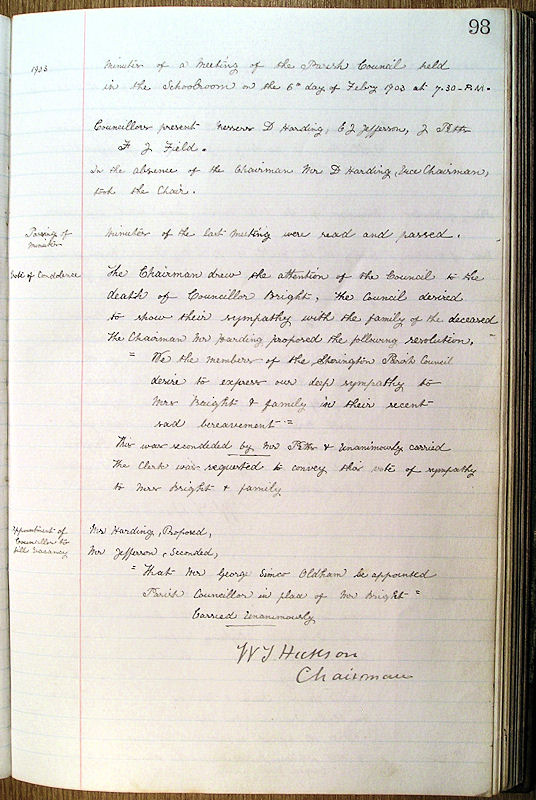 98
1903
Minutes of a Meeting of the Parish Council held
in the Schoolroom on the 6th day of Febry 1903 at 7.30 P.M.
Councillors present Messrs D Harding, E J Jefferson, J
F J Field.
In the absence of the Chairman Mr D Harding, Vice Chairman,
took the Chair.
Passing of
Minutes
Minutes of the last Meeting were read and passed.
Vote of Condolence
The Chairman drew the attention of the Council to the
death of Councillor Bright, the Council desired
to show their sympathy with the family of the deceased
The Chairman Mr Harding proposed the following resolution,
" We the members of the Sherington Parish Council
desire to express our deep sympathy to
Mrs Bright & family in their recent
sad bereavement "
This was seconded by Mr & Unanimously carried
The Clerk was requested to convey this vote of sympathy
to Mrs Bright & family
Appointment of
Councillor to
fill Vacancy
Mr Harding, Proposed,
Mr Jefferson, Seconded,
" That Mr George Simco Oldham be appointed
Parish Councillor in place of Mr Bright "
Carried Unanimously
W J Hickson
Chairman